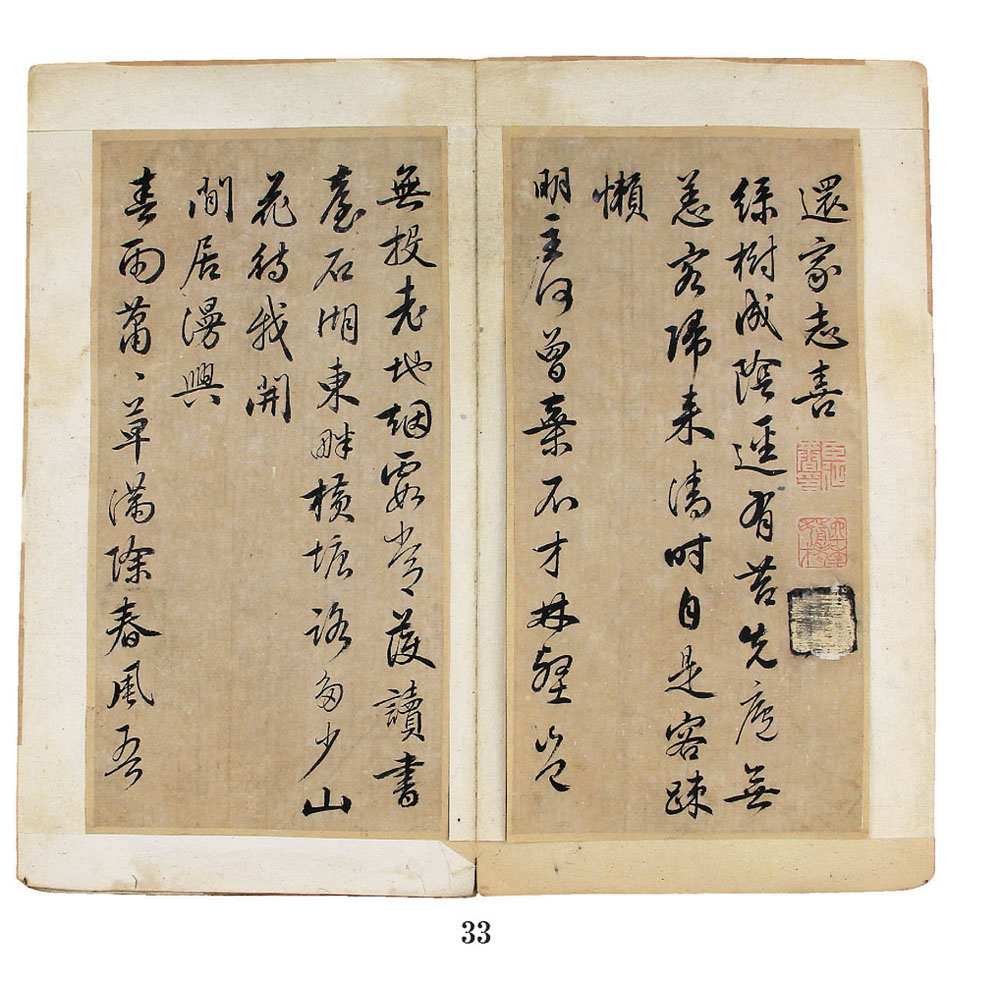 還家志喜
綠樹成陰逕有苔先廬無
恙客歸来清時自是容疎
懶
明主何曾棄不才林壑豈
無投老地烟霞常護讀書
臺石湖東畔橫塘路多少山
花待我開
間居漫興
春雨蕭〻草滿除春風吾
33